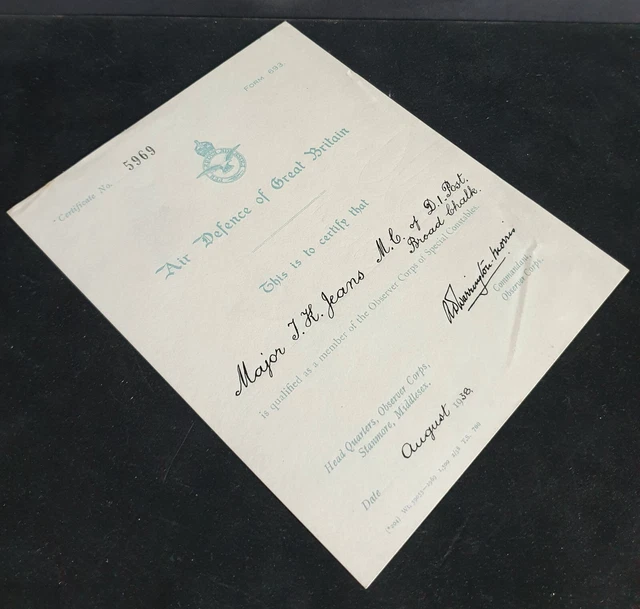 FORM 693.
Certificate No. 5969
Air Defence of Great Britain
This is to certify that
Major T. K. Jeans M.C. of D.1. Post.
Broad Chalk.
is qualified as a member of the Observer Corps of Special Constables.
Warrington-Morris
Commandant,
Observer Corps.
Head Quarters, Observer Corps,
Stanmore, Middlesex.
Date August 1938.